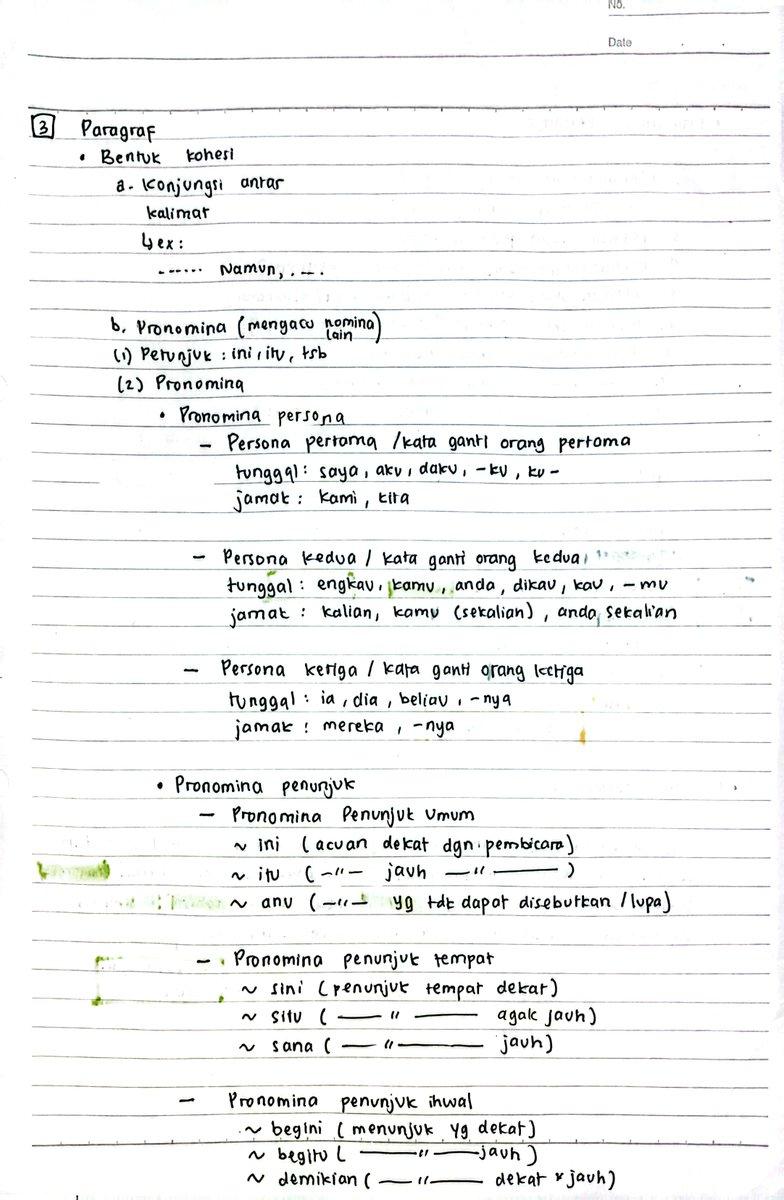 No.
Date
3 Paragraf
• Bentuk kohesi
a. Konjungsi antar
kalimat
↳ ex:
...... Namun, ....
b. Pronomina (mengacu nomina lain)
(1) Petunjuk : ini, itu, tsb
(2) Pronomina
• Pronomina persona
– Persona pertama / kata ganti orang pertama
tunggal : saya, aku, daku, -ku, ku-
jamak : kami, kita
– Persona kedua / kata ganti orang kedua
tunggal : engkau, kamu, anda, dikau, kau, -mu
jamak : kalian, kamu (sekalian), anda sekalian
– Persona ketiga / kata ganti orang ketiga
tunggal : ia, dia, beliau, -nya
jamak : mereka, -nya
• Pronomina penunjuk
– Pronomina Penunjuk Umum
~ ini (acuan dekat dgn. pembicara)
~ itu (–"– jauh –"–)
~ anu (–"– yg tdk dapat disebutkan / lupa)
– Pronomina penunjuk tempat
~ sini (penunjuk tempat dekat)
~ situ (–"– agak jauh)
~ sana (–"– jauh)
– Pronomina penunjuk ihwal
~ begini (menunjuk yg dekat)
~ begitu (–"– jauh)
~ demikian (–"– dekat * jauh)